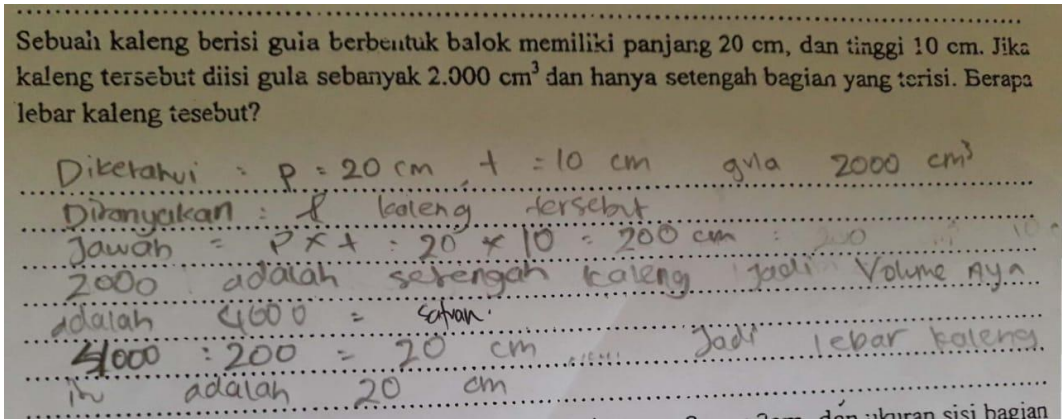 Sebuah kaleng berisi gula berbentuk balok memiliki panjang 20 cm, dan tinggi 10 cm. Jika
kaleng tersebut diisi gula sebanyak 2.000 cm³ dan hanya setengah bagian yang terisi. Berapa
lebar kaleng tesebut?
Diketahui : p = 20 cm , t = 10 cm gula 2000 cm³
Ditanyakan : l kaleng tersebut
Jawab = P x t = 20 x 10 = 200 cm
2000 adalah setengah kaleng jadi Volume nya
adalah 4000 = satuan.
4000 : 200 = 20 cm Jadi lebar kaleng
itu adalah 20 cm
dan ukuran sisi bagian